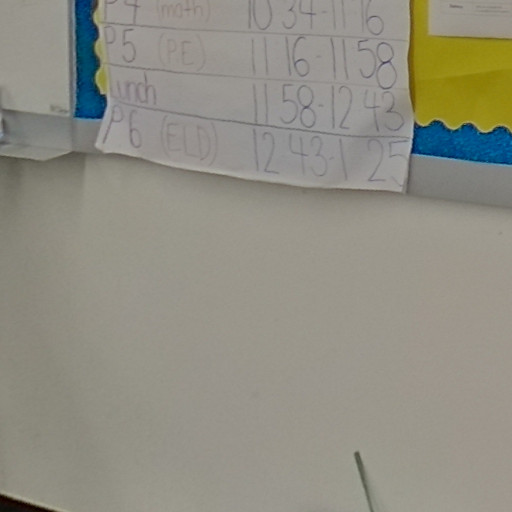 P4 (math) 10 34-11 16
P5 (PE) 11 16-11 58
Lunch 11 58-12 43
P6 (ELD) 12 43-1 25